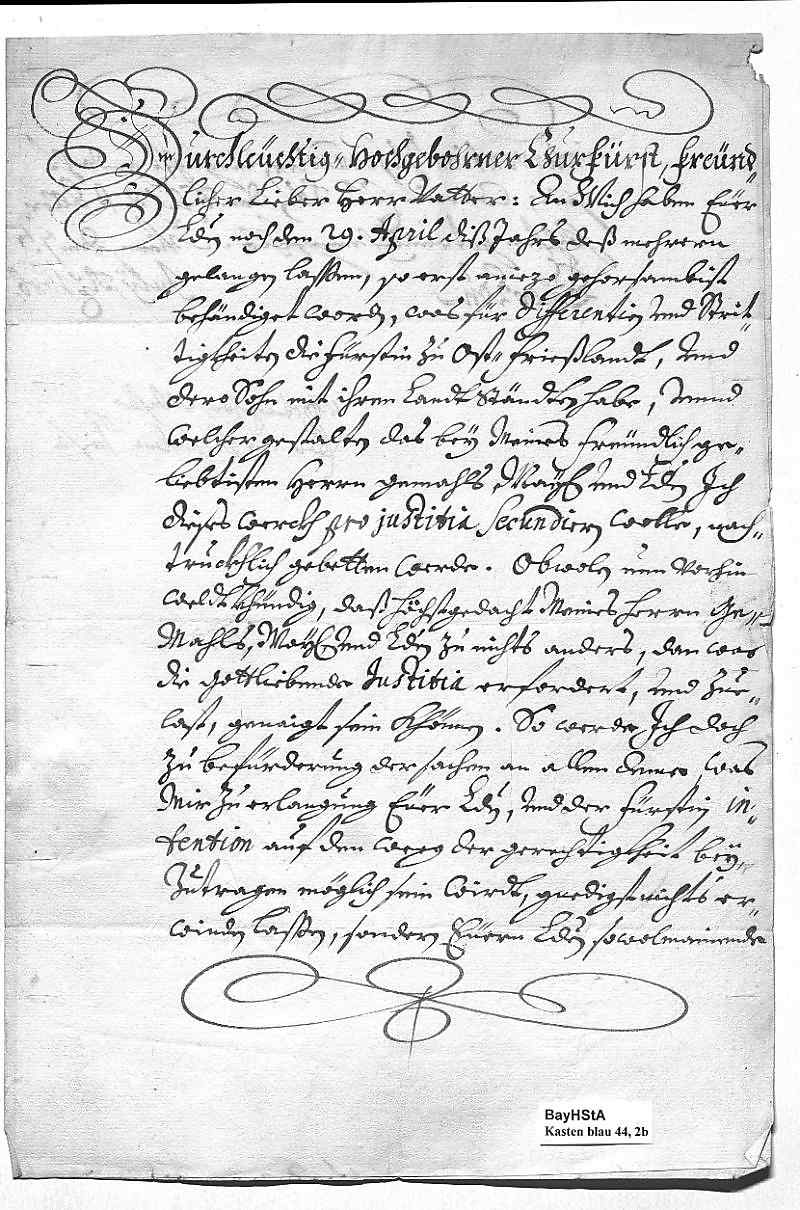 Durchleüchtig- Hochgebohrner Churfürst, freünd-
licher lieber Herr Vatter: An Mich haben Euer
Ldn noch dem 29. April diß Jahrs deß mehrern
gelangen lassen, so erst aniezo gehorsambist
behändiget wordn, was für differentien und Strit-
tigkheiten die Fürstin zu Ost-Frießlandt, und
dero Sohn mit ihren Landt Ständten habe, unnd
welcher gestalten das bey Meines freündlich ge-
liebtisten Herrn gemahls May: und Ldn Ich
dises werckh pro justitia secundiern wolle, nach-
truckhlich gebetten werde. Obwoln nun vorhin
weldt khündig, daß höchstgedacht Meines herrn Ge-
Mahls, May: und Ldn zu nichts anders, dan was
die gottliebende Justitia erfordert, und zue-
last, genaigt sein khönnen. So werde Ich doch
zu befürderung der sachen an allen deme, was
Mir zu erlangung Euer Ldn, und der fürstin in-
tention auf den weeg der gerechtigkheit bey-
zutragen möglich sein wirdt, gnedigst nichts er-
winden lassen, sondern Euern Ldn, so wolmainende
BayHStA
Kasten blau 44, 2b